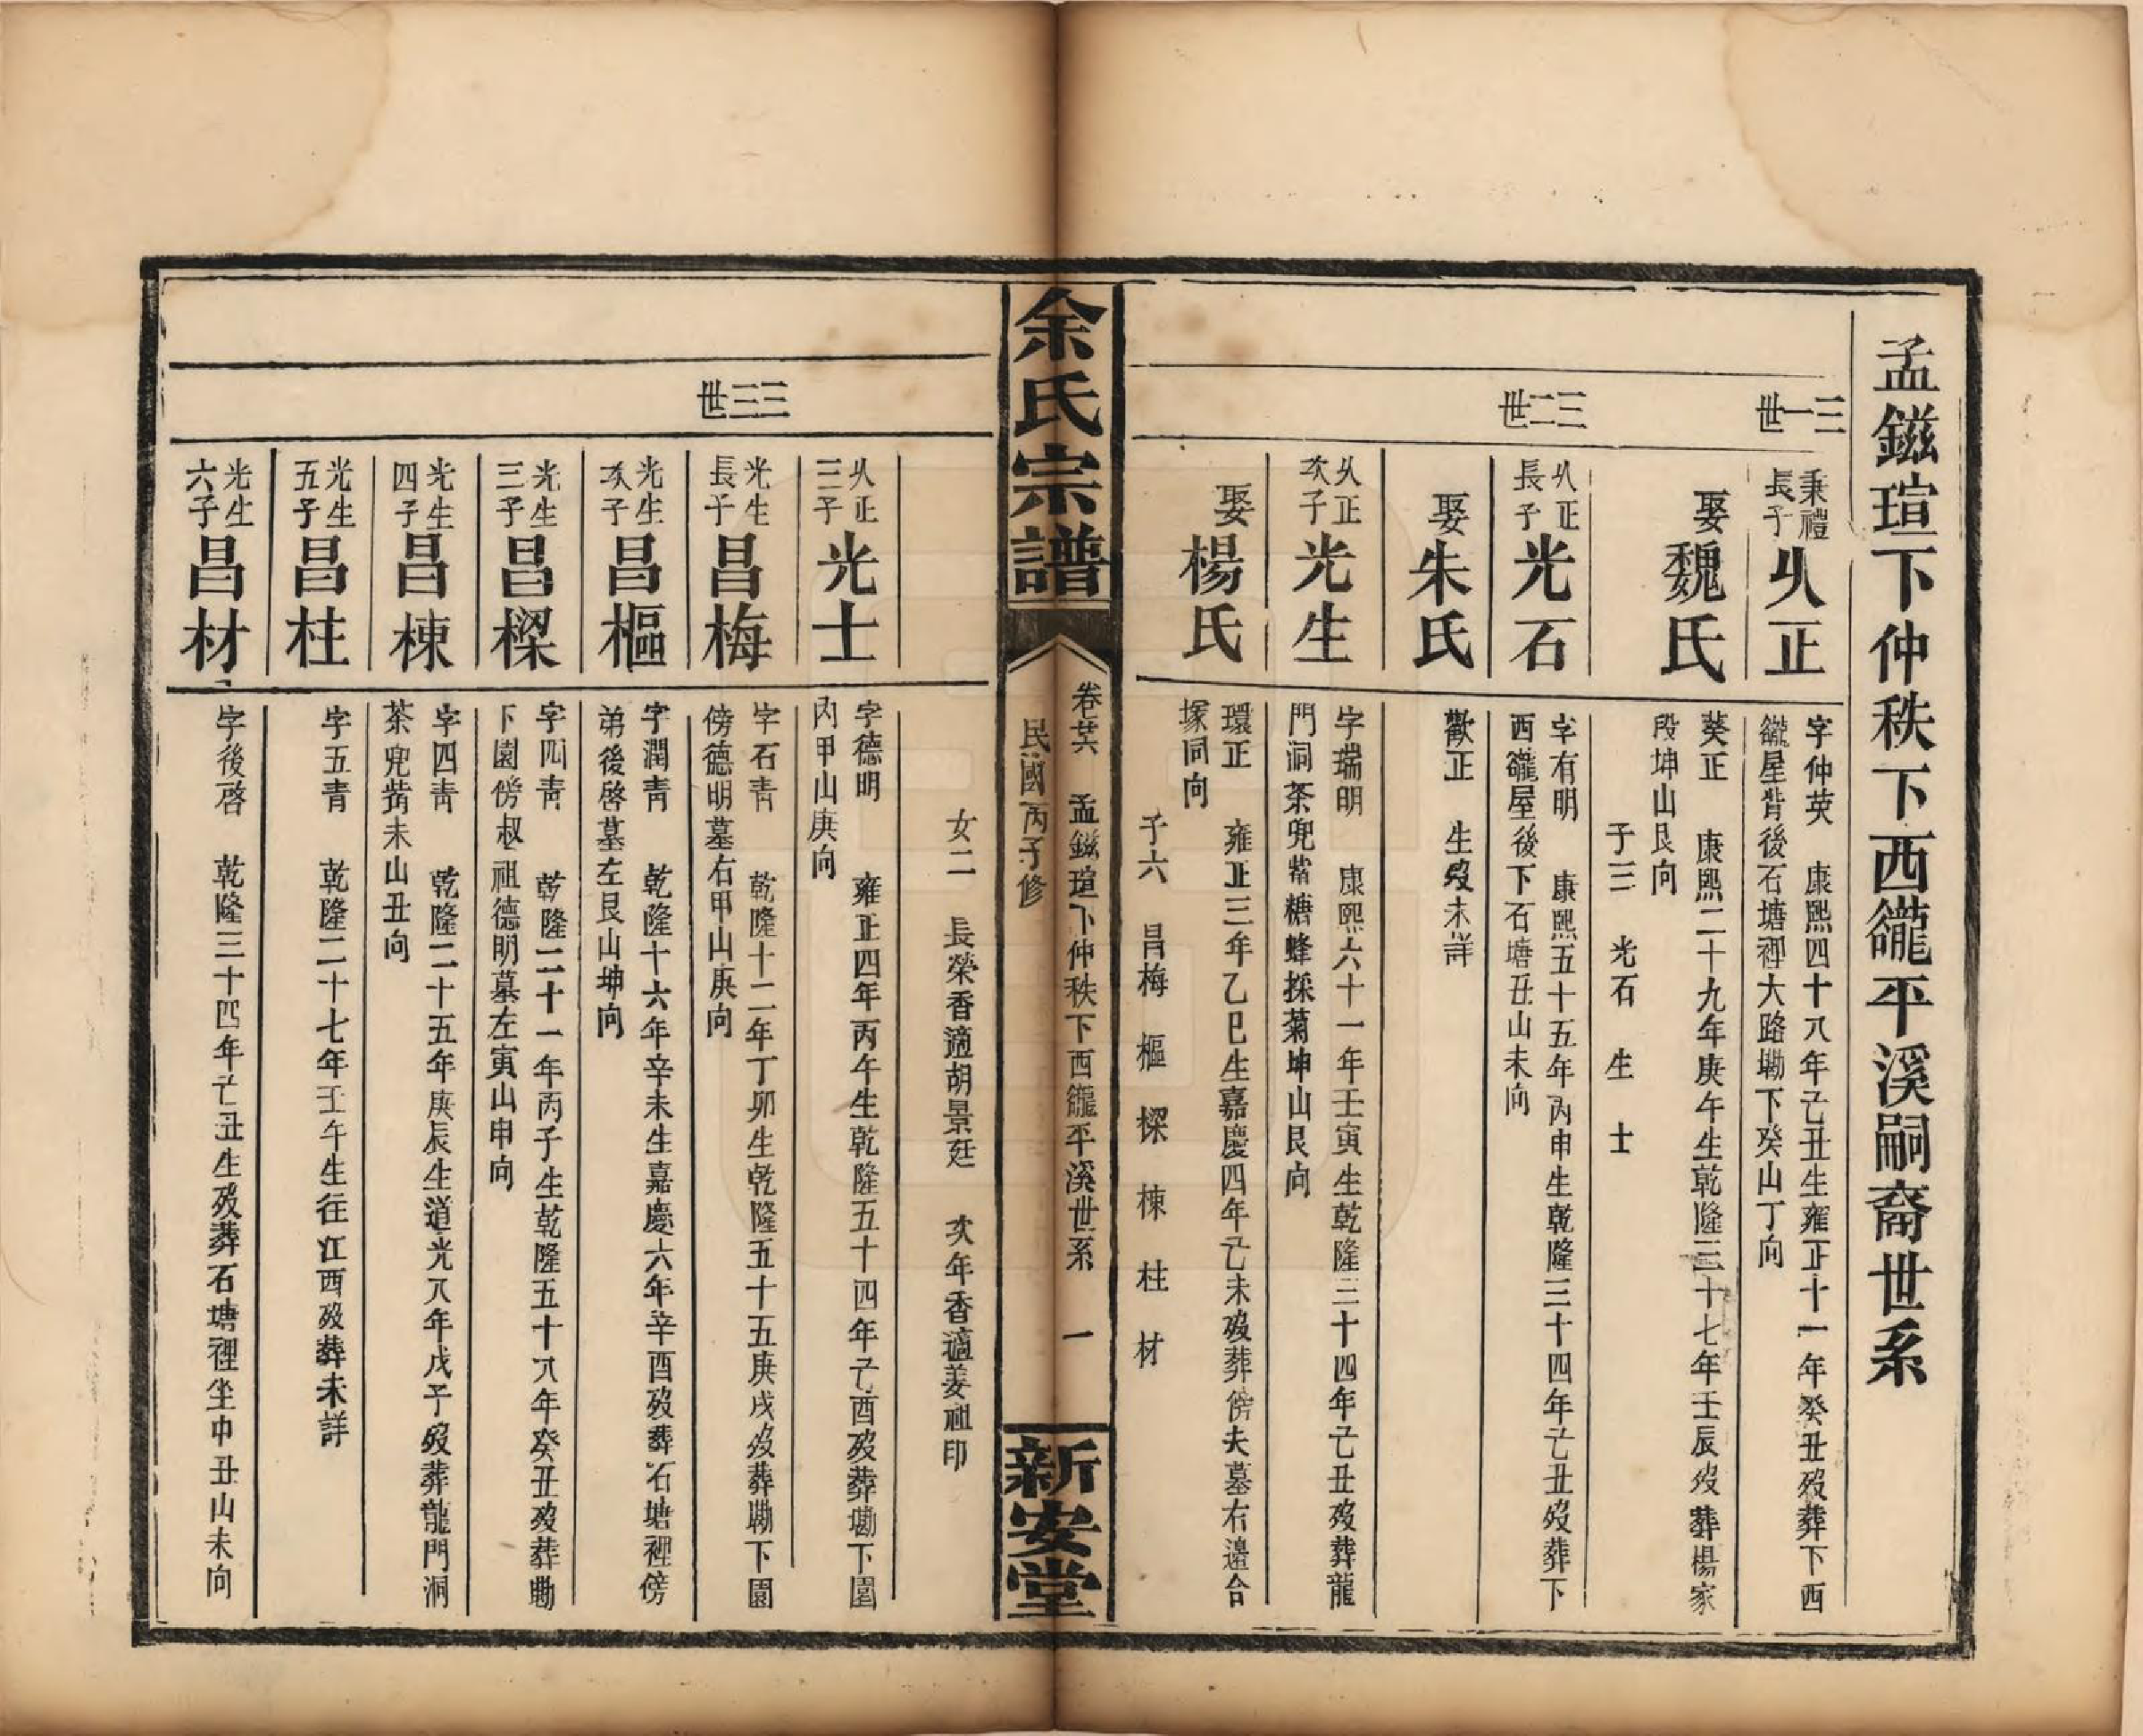 孟鎡瑄下仲秩下西𧯆平溪嗣裔世系
三一世
秉禮
長子
乆正
字仲英 康熙四十八年己丑生雍正十一年癸丑歿葬下西
𧯆屋背後石塘裡大路墈下癸山丁向
娶
魏氏
葵正 康熙二十九年庚午生乾隆三十七年壬辰歿葬楊家
段坤山艮向
子三 光石 生 士
三二世
乆正
長子
光石
字有明 康熙五十五年丙申生乾隆三十四年己丑歿葬下
西𧯆屋後下石塘丑山未向
娶
朱氏
歡正 生歿未詳
乆正
次子
光生
字瑞明 康熙六十一年壬寅生乾隆三十四年己丑歿葬龍
門洞茶兜喾糖蜂採菊坤山艮向
娶
楊氏
環正 雍正三年乙巳生嘉慶四年己未歿葬傍夫墓右邉合
塚同向
子六 昌梅 樞 樑 棟 柱 材
余氏宗譜
卷廿六 孟鎡瑄下仲秩下西𧯆平溪世系 一
民國丙子修
新安堂
女二 長榮香適胡景廷 次年香適姜祖印
乆正
三子
光士
字德明 雍正四年丙午生乾隆五十四年己酉歿葬墈下園
內甲山庚向
三三世
光生
長子
昌梅
字石青 乾隆十二年丁卯生乾隆五十五庚戌歿葬墈下園
傍德明墓右甲山庚向
光生
次子
昌樞
字潤青 乾隆十六年辛未生嘉慶六年辛酉歿葬石塘裡傍
弟後啓墓左艮山坤向
光生
三子
昌樑
字四青 乾隆二十一年丙子生乾隆五十八年癸丑歿葬墈
下園傍叔祖德明墓左寅山申向
光生
四子
昌棟
字四青 乾隆二十五年庚辰生道光八年戊子歿葬龍門洞
茶兜喾未山丑向
光生
五子
昌柱
字五青 乾隆二十七年壬午生往江西歿葬未詳
光生
六子
昌材
字後啓 乾隆三十四年己丑生歿葬石塘裡坐中丑山未向